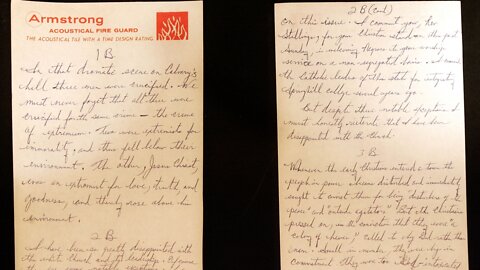 Armstrong
ACOUSTICAL FIRE GUARD
THE ACOUSTICAL TILE WITH A TIME DESIGN RATING
1 B
In that dramatic scene on Calvary's
hill three men were crucified. We
must never forget that all three were
crucified for the same crime - the crime
of extremism. Two were extremists for
immorality, and thus fell below their
environment. The other, Jesus Christ,
was an extremist for love, truth, and
goodness, and thereby rose above his
environment.
2 B
I have been so greatly disappointed with
the white Church and its leadership. Of course
2 B (cont)
on this issue. I commend you, Rev
Stallings, for your Christian stand on this past
Sunday, in welcoming Negroes to your worship
service on a non-segregated basis. I commend
the Catholic leaders of this state for integrating
Springhill college several years ago.
But despite these notable exceptions I
must honestly reiterate that I have been
disappointed with the Church.
3 B
Whenever the early Christians entered a town the
people in power became disturbed and immediately
sought to convict them for being "disturbers of the
peace" and "outside agitators." But the Christians
pressed on, with the conviction that they were "a
colony of heaven," called to obey God rather than
man. Small in number, they were big in
commitment. They were too God-intoxicated